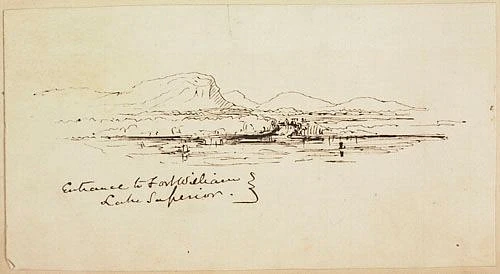 Entrance to Fort William
Lake Superior.